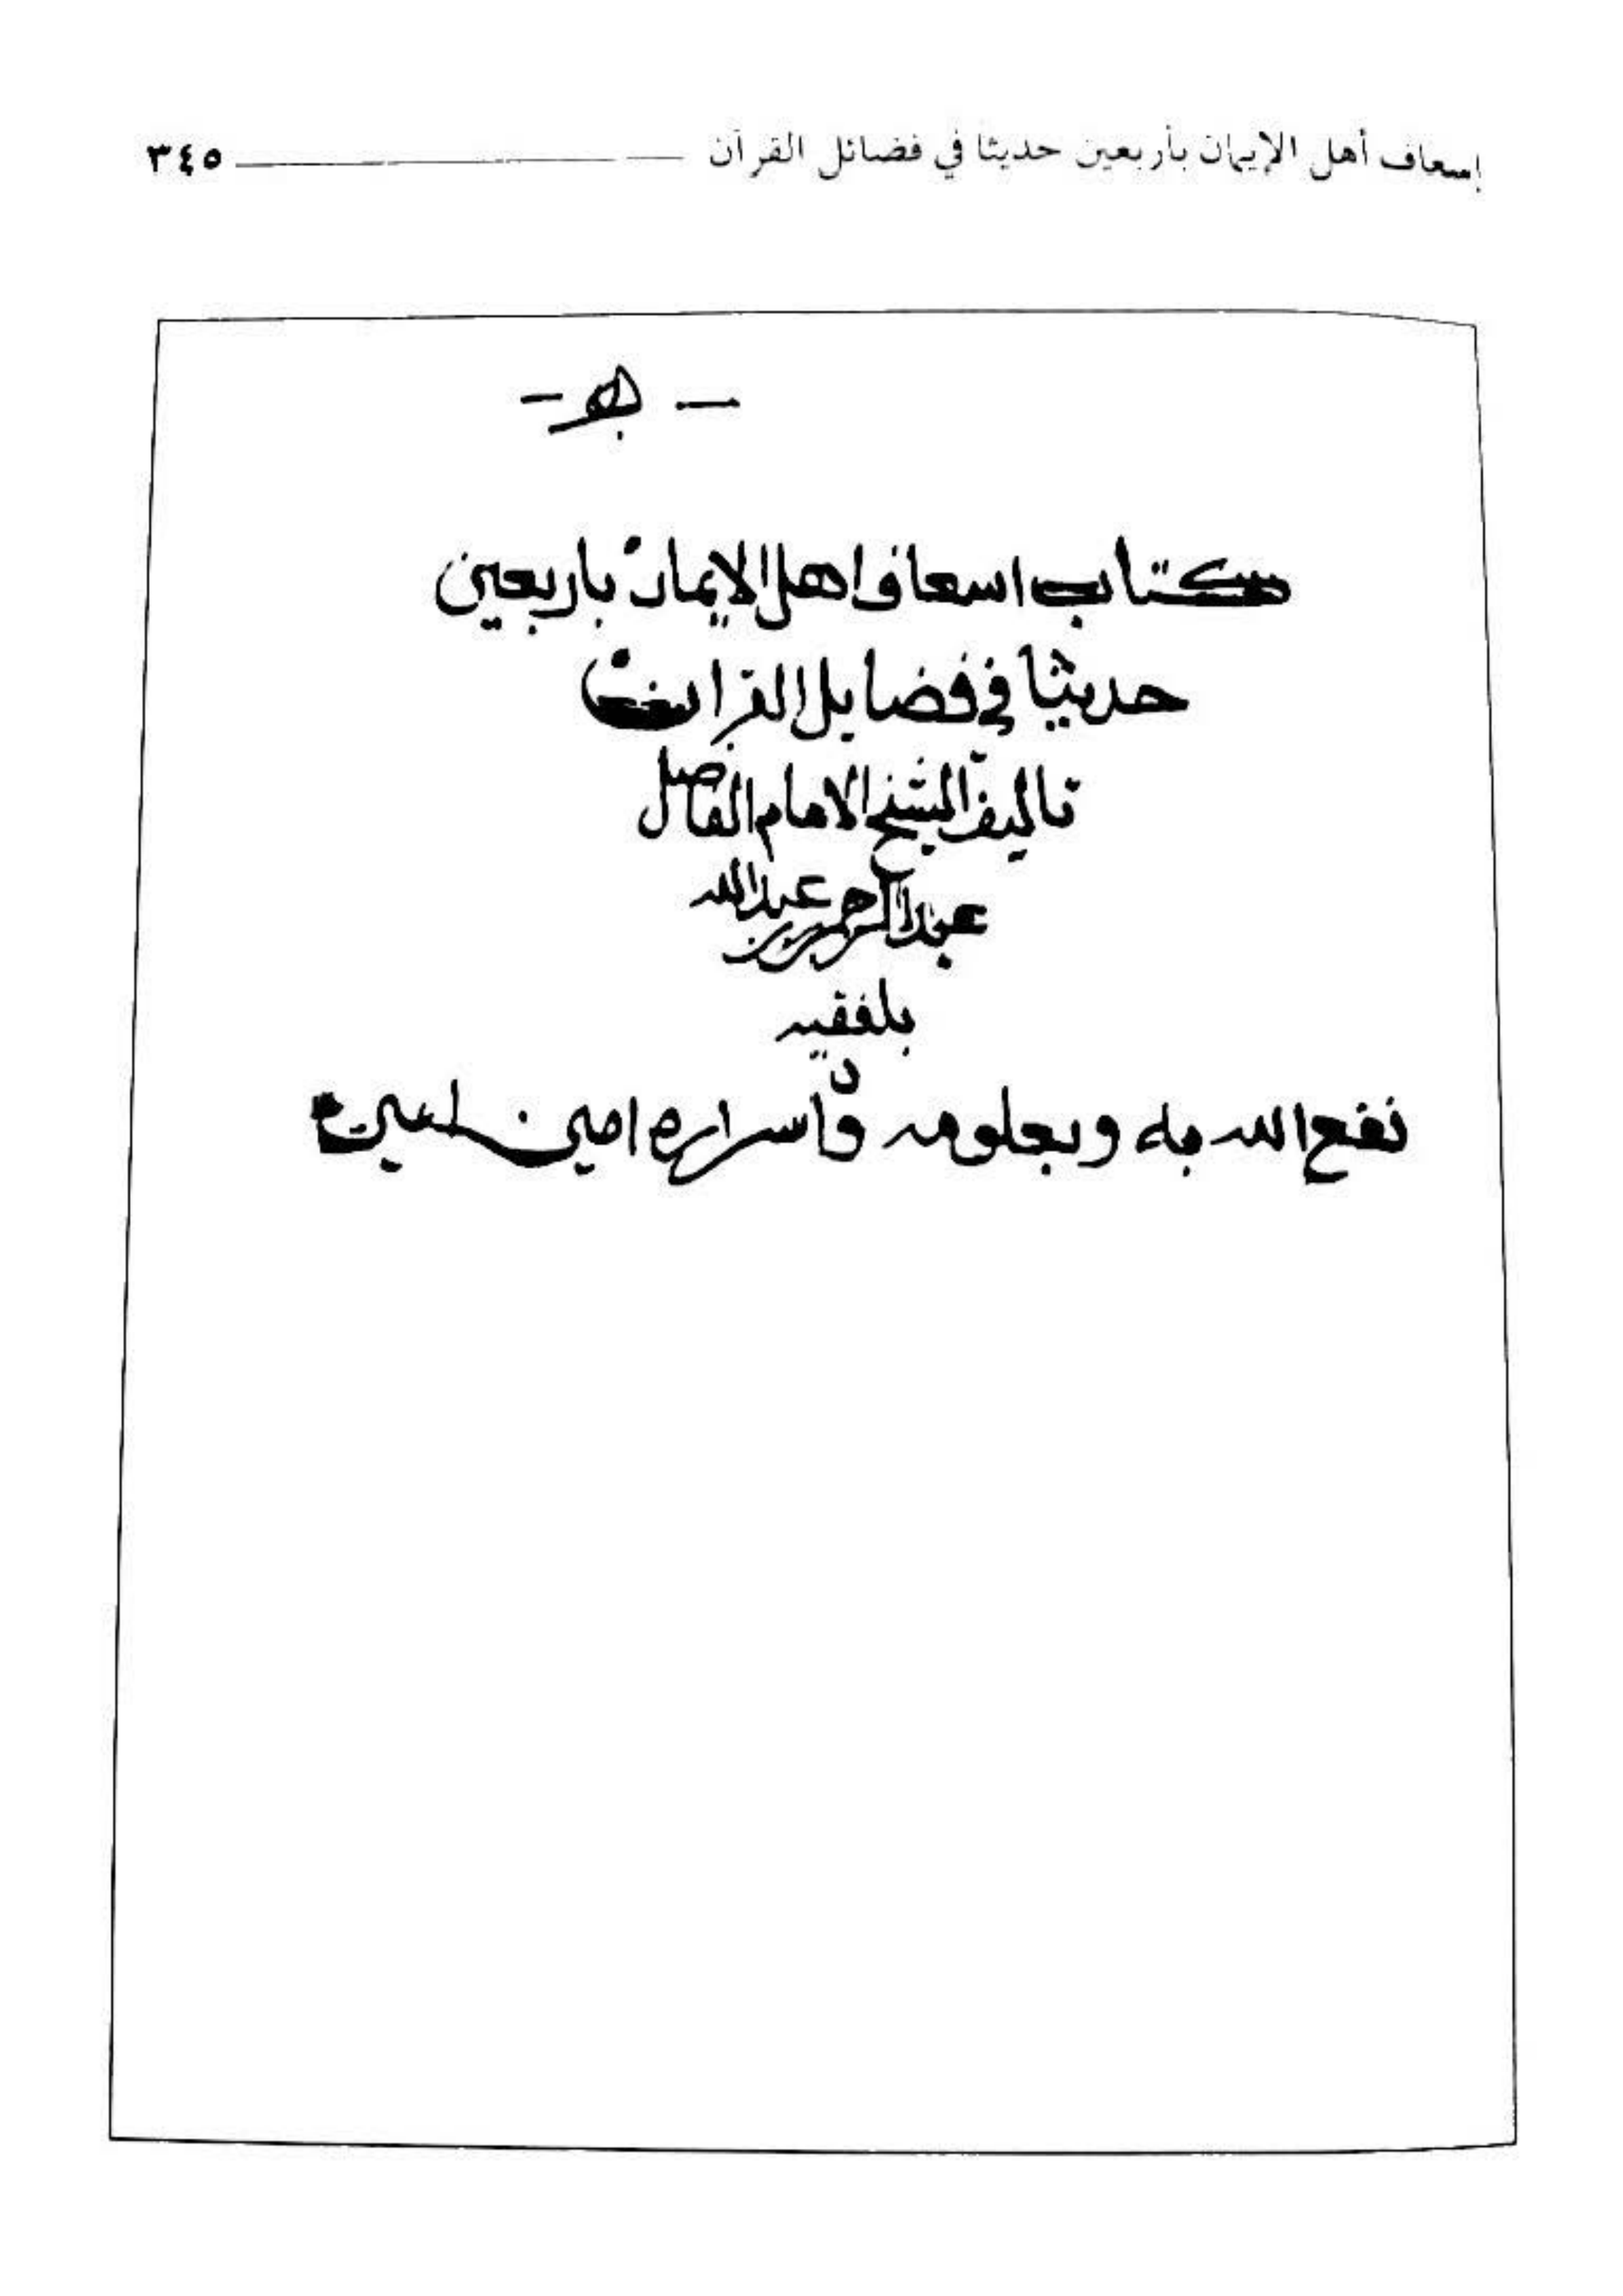 إسعاف أهل الإيمان بأربعين حديثا في فضائل القرآن ٣٤٥
كتاب اسعاف اهل الايمان باربعين
حديثا في فضايل القران
تاليف الشيخ الامام الفاضل
عبدالرحمن بن عبدالله
بلفقيه
نفع الله به وبعلومه واسراره امين امين